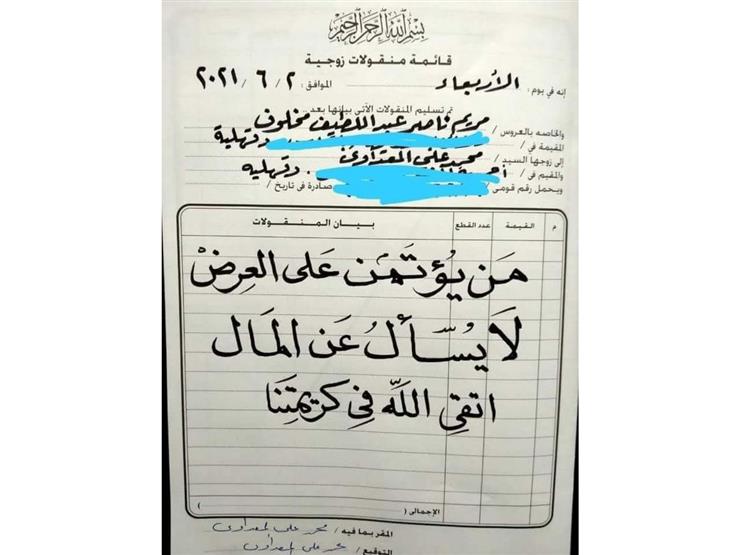 بسم الله الرحمن الرحيم
قائمة منقولات زوجية
إنه في يوم : الأربعاء الموافق : ٢ / ٦ / ٢٠٢١
تم تسليم المنقولات الآتى بيانها بعد
والخاصه بالعروس / مريم ناصر عبد اللطيف مخلوف
المقيمة في / دقهلية
إلى زوجها السيد / محمد على المعداوى
والمقيم فى / دقهليه
ويحمل رقم قومى / صادرة فى تاريخ /
م القيمة عدد القطع بيـان المـنـقـولات
مَن يُؤتَمَن عَلى العِرضْ
لَا يُسّألُ عَن المَال
اتقِ اللَّه فِي كَرِيمَتِنَا
الإجمالى ( )
المقر بما فيه / محمد على المعداوى
التوقيع / محمد على المعداوى